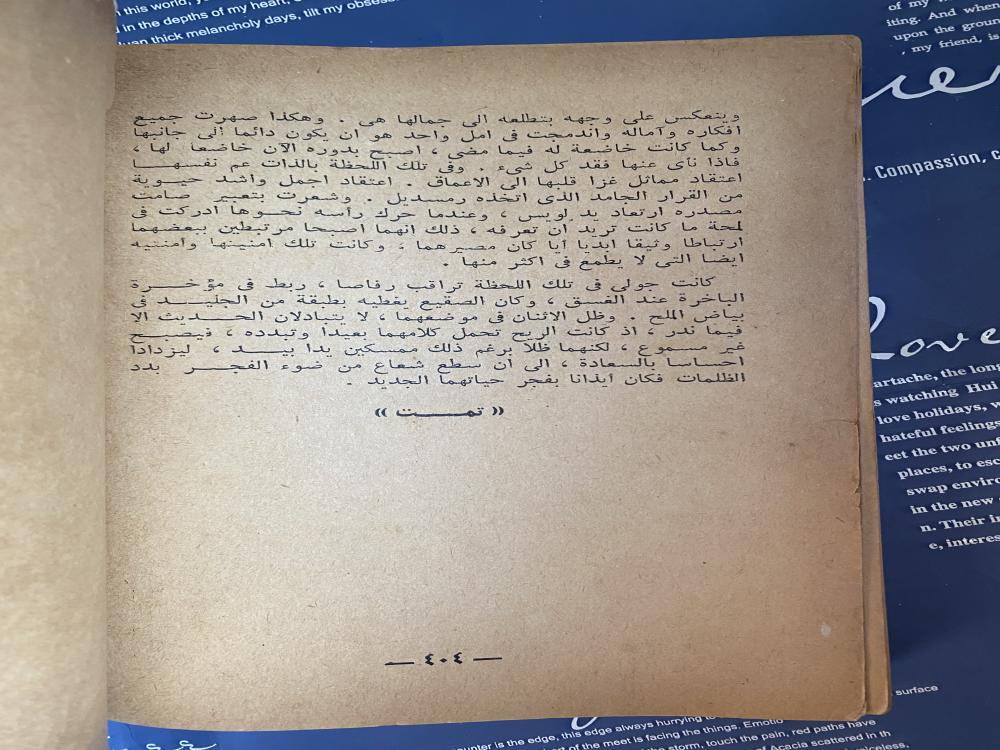 وينعكس على وجهه بتطلعه الى جمالها هى . وهكذا صهرت جميع
افكاره وآماله واندمجت فى امل واحد هو ان يكون دائما الى جانبها
وكما كانت خاضعة له فيما مضى ، اصبح بدوره الآن خاضعا لها ،
فاذا نأى عنها فقد كل شىء . وفى تلك اللحظة بالذات عم نفسهــا
اعتقاد مماثل غزا قلبها الى الاعماق . اعتقاد اجمل واشد حيــوية
من القرار الجامد الذى اتخذه رمسديل . وشعرت بتعبير صامت
مصدره ارتعاد يد لويس ، وعندما حرك رأسه نحــوها ادركت فى
لمحة ما كانت تريد ان تعرفه ، ذلك انهما اصبحا مرتبطين ببعضهما
ارتباطا وثيقا ابديا ايا كان مصيرهما ، وكانت تلك امنيتها وامنيته
ايضا التى لا يطمع فى اكثر منها .
كانت جولى فى تلك اللحظة تراقب رفاصا ، ربط فى مؤخــرة
الباخرة عند الغسق ، وكان الصقيع يغطيه بطبقة من الجليــد فى
بياض الملح . وظل الاثنان فى موضعهما ، لا يتبادلان الحــديث الا
فيما ندر ، اذ كانت الريح تحمل كلامهما بعيدا وتبدده ، فيصبــح
غير مسموع ، لكنهما ظلا برغم ذلك ممسكين يدا بيــد ، ليزدادا
احساسا بالسعادة ، الى ان سطع شعاع من ضوء الفجــر بدد
الظلمات فكان ايذانا بفجر حياتهما الجديد .
« تمــــت »
— ٤٠٤ —
in this world, yo
in the depths of my heart,
thick melancholy days, tilt my obses
of my
iting. And when
upon the groun
, my friend, is
. Compassion, c
Love
artache, the long
s watching Hui
love holidays, w
hateful feelings
eet the two unf
places, to esc
swap enviro
in the new
n. Their in
e, interes
surface
counter is the edge, this edge always hurrying to
of the meet is facing the things. Emotio
the storm, touch the pain, red paths have
of Acacia scattered in th